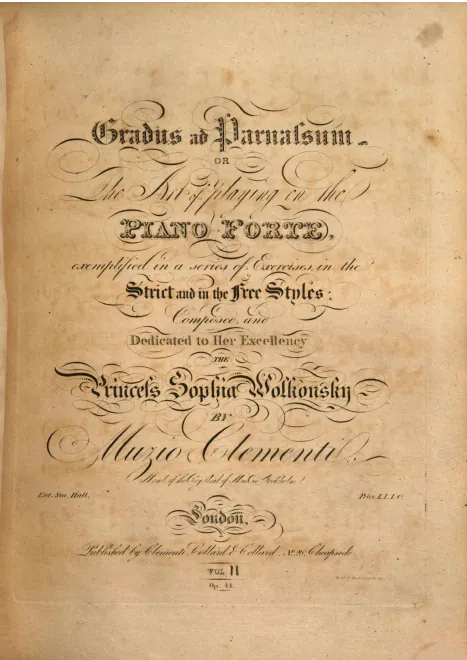 Gradus ad Parnaſsum
OR
The Art of playing on the
PIANO FORTE,
exemplified in a series of Exercises, in the
Strict and in the Free Styles;
Composed, and
Dedicated to Her Excellency
THE
Princeſs Sophia Wolkonsky
BY
Muzio Clementi.
Ent. Sta. Hall.
Price £.1.1.0
London,
Published by Clementi, Collard & Collard, No. 26, Cheapside
VOL II
Op. 44.